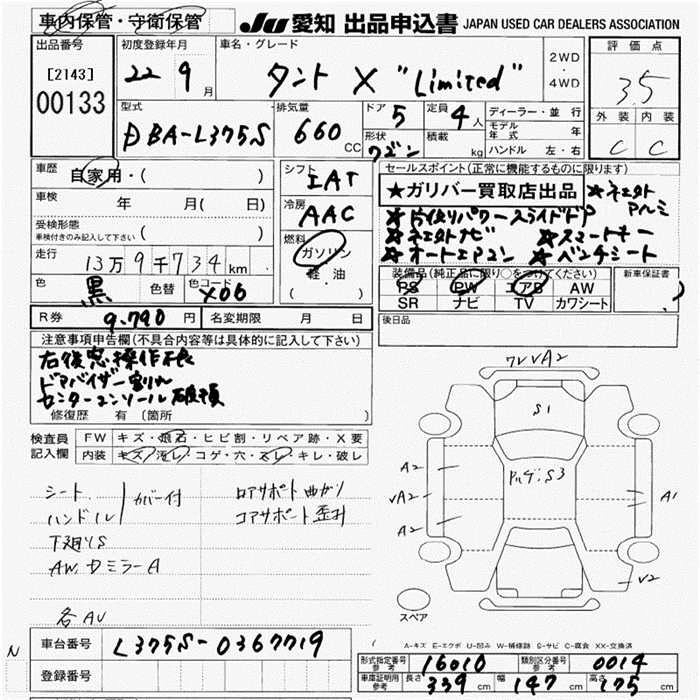 車内保管・守衛保管
JU 愛知 出品申込書 JAPAN USED CAR DEALERS ASSOCIATION
出品番号
[2143]
00133
初度登録年月
22 9 月
車名・グレード
タント X "Limited"
2WD
・
4WD
評価点
3.5
外装 内装
C C
型式
DBA-L375S
排気量
660 CC
ドア 5
定員 4 人
形状 ワゴン
積載 kg
ディーラー・並行
モデル年式 年
ハンドル 左・右
車歴
自家用・( )
車検
年 月( 日)
受検形態
車検付きのみ記入して下さい ( )
走行
13万9千734km
色 黒
色替
色コード X06
シフト
IAT
冷房
AAC
燃料
ガソリン
軽油
( )
セールスポイント(正常に機能するものに限ります)
★ガリバー買取店出品 ★社外アルミ
★片側パワースライドドア
★社外ナビ ★スマートキー
★オートエアコン ★ベンチシート
装備品(純正品に限り○をつけてください)
PS PW エアB AW
SR ナビ TV カワシート
新車保証書
R券 9,790 円
名変期限 月 日
後日品
注意事項申告欄(不具合内容等は具体的に記入して下さい)
右後窓操作不良
ドアバイザー割れ
センターコンソール破損
修復歴 有(箇所 )
検査員記入欄
FW キズ・飛石・ヒビ割・リペア跡・X要
内装 キズ・汚レ・コゲ・穴・スレ・キレ・破レ
シート
ハンドル カバー付
下廻りS
AW、ドミラーA
各AU
ロアサポート曲がり
コアサポート歪み
フレVA2
S1
A2
VA2
A2
A1
V2
スペア
車台番号 L375S-0367719
登録番号
N
A-キズ E-エクボ U-凹み W-補修跡 S-サビ C-腐食 XX-交換済
形式指定番号 参考 16010
類別区分番号 参考 0014
車庫証明用 参考 長さ 339 cm 幅 147 cm 高さ 175 cm